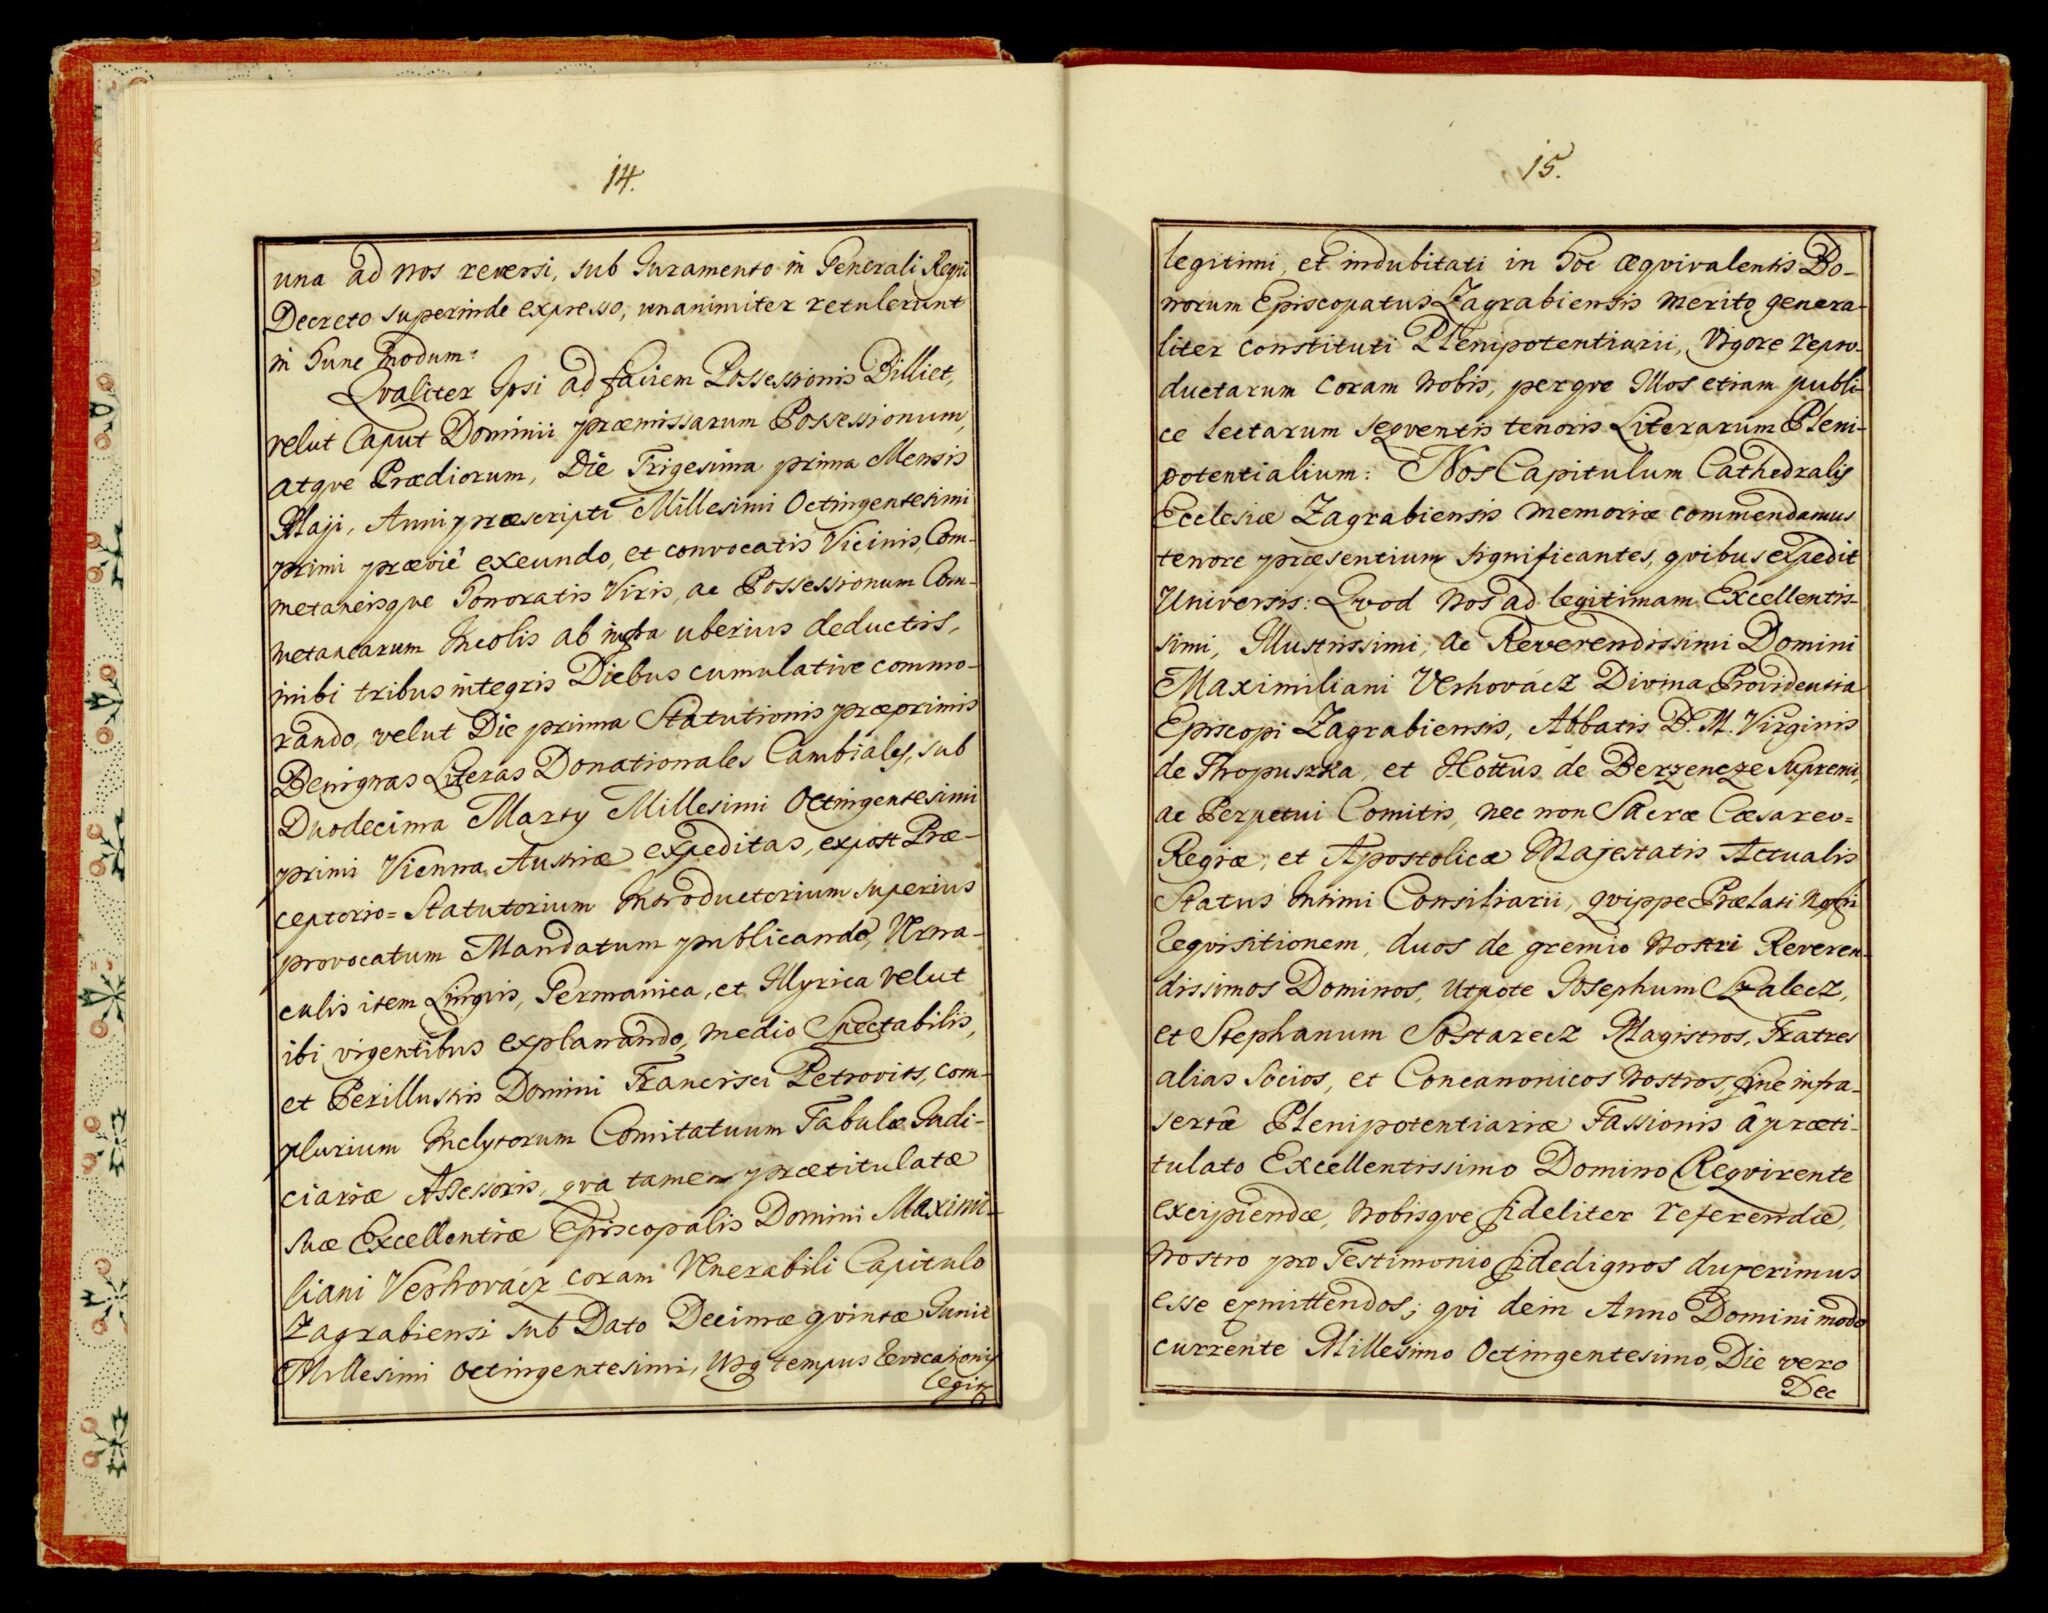 14.
una ad Nos reversi, sub Juramento in Generali Regni
Decreto superinde expresso, unanimiter retulerunt
in Hunc Modum:
Qvaliter Ipsi ad faciem Possessionis Billiet,
velut Caput Dominii præmissarum Possessionum,
atqve Prædiorum, Die Trigesima prima Mensis
Maji, Anni præscripti Millesimi Octingentesimi
primi prævie exeundo, et convocatis Vicinis, Com-
metaneisqve Honoratis Viris, ac Possessionum Com-
metanearum Incolis ab infra uberius deductis,
inibi tribus integris Diebus cumulative commo-
rando, velut Die prima Statutionis præprimis
Benignas Literas Donationales Cambiales, sub
Duodecima Marty Millesimi Octingentesimi
primi Viennæ Austriæ expeditas, expost Præ-
ceptorio=Statutorium Introductorium superius
provocatum Mandatum publicando, Verna-
culis item Lingvis, Germanica, et Illyrica velut
ibi vigentibus explanando, medio Spectabilis,
et Perillustris Domini Francisci Petrovits, com-
plurium Inclytorum Comitatuum Tabulæ Judi-
ciariæ Assessoris, qva tamen prætitulatæ
suæ Excellentiæ Episcopalis Domini Maximi-
liani Verhovácz coram Venerabili Capitulo
Zagrabiensi sub Dato Decimæ qvintæ Junii
Millesimi Octingentesimi, tempus Evocationis
legit
15.
legitimi, et indubitati in Hoc æqvivalentis Bo-
norum Episcopatus Zagrabiensis merito genera-
liter constituti Plenipotentiarii, Vigore repro-
ductarum coram Nobis, perqve Illos etiam publi-
ce lectarum seqventis tenoris Literarum Pleni-
potentialium: Nos Capitulum Cathedralis
Ecclesiæ Zagrabiensis memoriæ commendamus
tenore præsentium significantes, qvibus expedit
Universis: Qvod Nos ad legitimam Excellentis-
simi, Illustrissimi, ac Reverendissimi Domini
Maximiliani Verhovácz Divina Providentia
Episcopi Zagrabiensis, Abbatis B. M. Virginis
de Thopuszka, et Cottus de Berzencze Supremi,
ac Perpetui Comitis, nec non Sacræ Cæsareo=
Regiæ, et Apostolicæ Majestatis Actualis
Status Intimi Consiliarii, qvippe Prælati Nostri
reqvisitionem, duos de gremio Nostri Reveren-
dissimos Dominos, utpote Josephum Szalecz,
et Stephanum Sostarecz Magistros, Fratres
alias Socios, et Concanonicos Nostros, fine infra-
sertæ Plenipotentiariæ Fassionis â præti-
tulato Excellentissimo Domino Reqvirente
excipiendæ, Nobisqve fideliter referendæ,
Nostro pro Testimonio fidedignos duxerimus
esse exmittendos; qvi dein Anno Domini modo
currente Millesimo Octingentesimo, Die vero
Dec